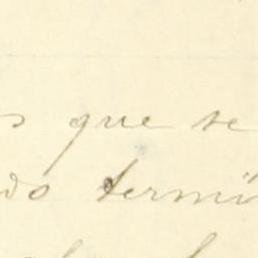 s que se
do termi